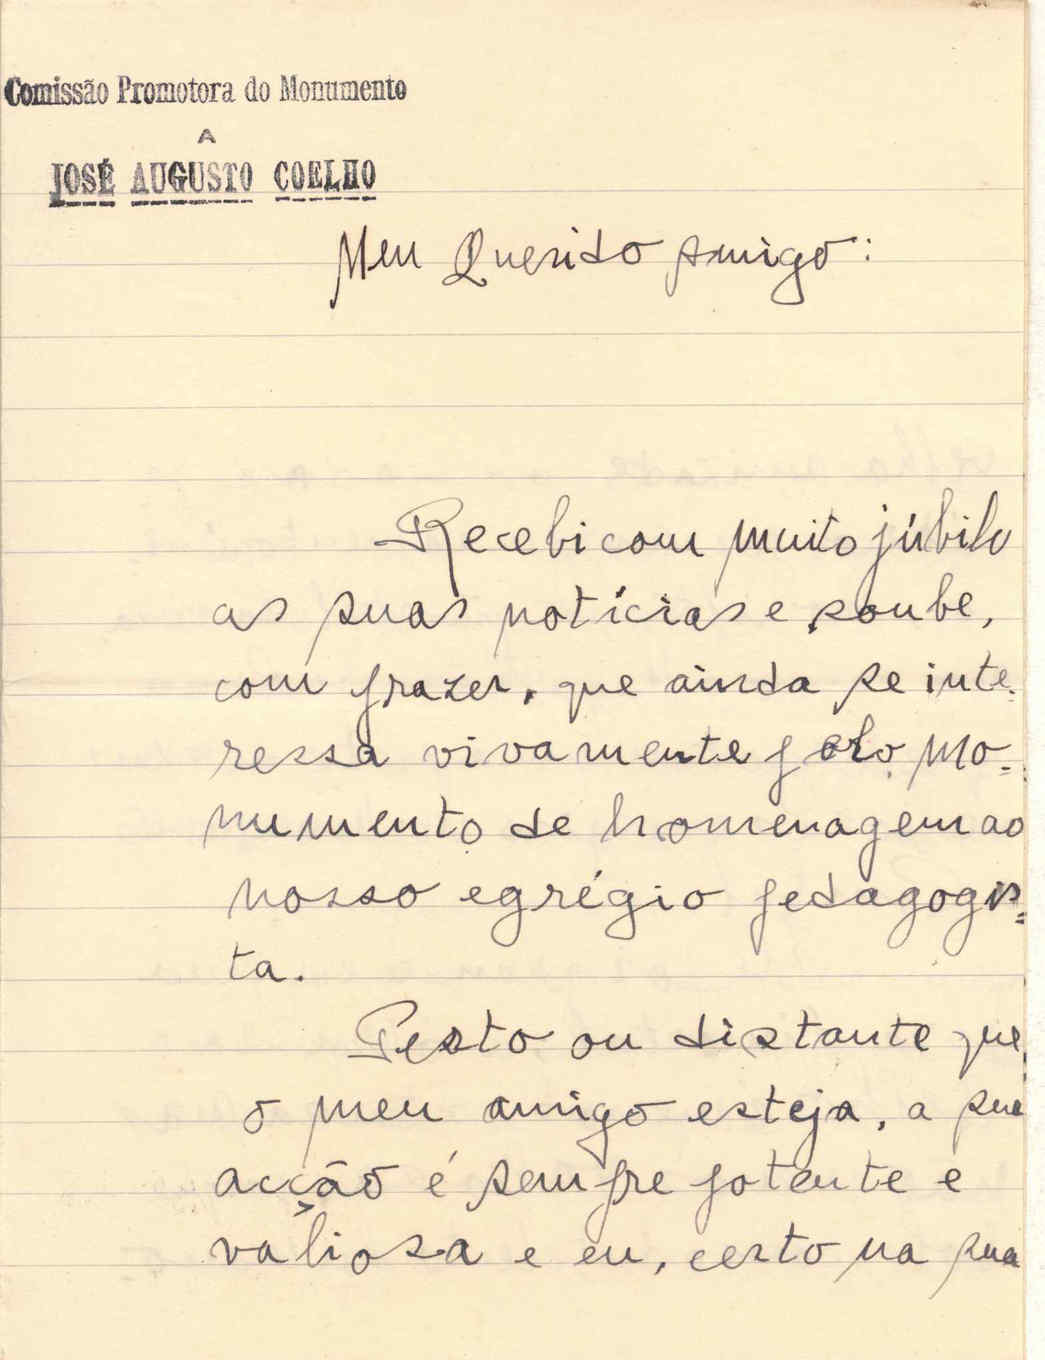 Comissão Promotora do Monumento
A
JOSÉ AUGUSTO COELHO
Meu Querido Amigo:
Recebi com muito júbilo
as suas notícias e soube,
com prazer, que ainda se inte-
ressa vivamente pelo mo-
numento de homenagem ao
nosso egrégio pedagogis-
ta.
Perto ou distante que
o meu amigo esteja, a sua
acção é sempre potente e
valiosa e eu, certo na sua